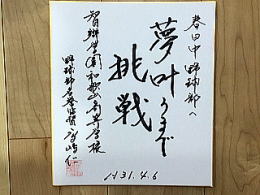 春日中野球部へ
夢叶うまで
挑戦
智辯学園和歌山高等学校
野球部名誉監督 高嶋仁
H31.4.6